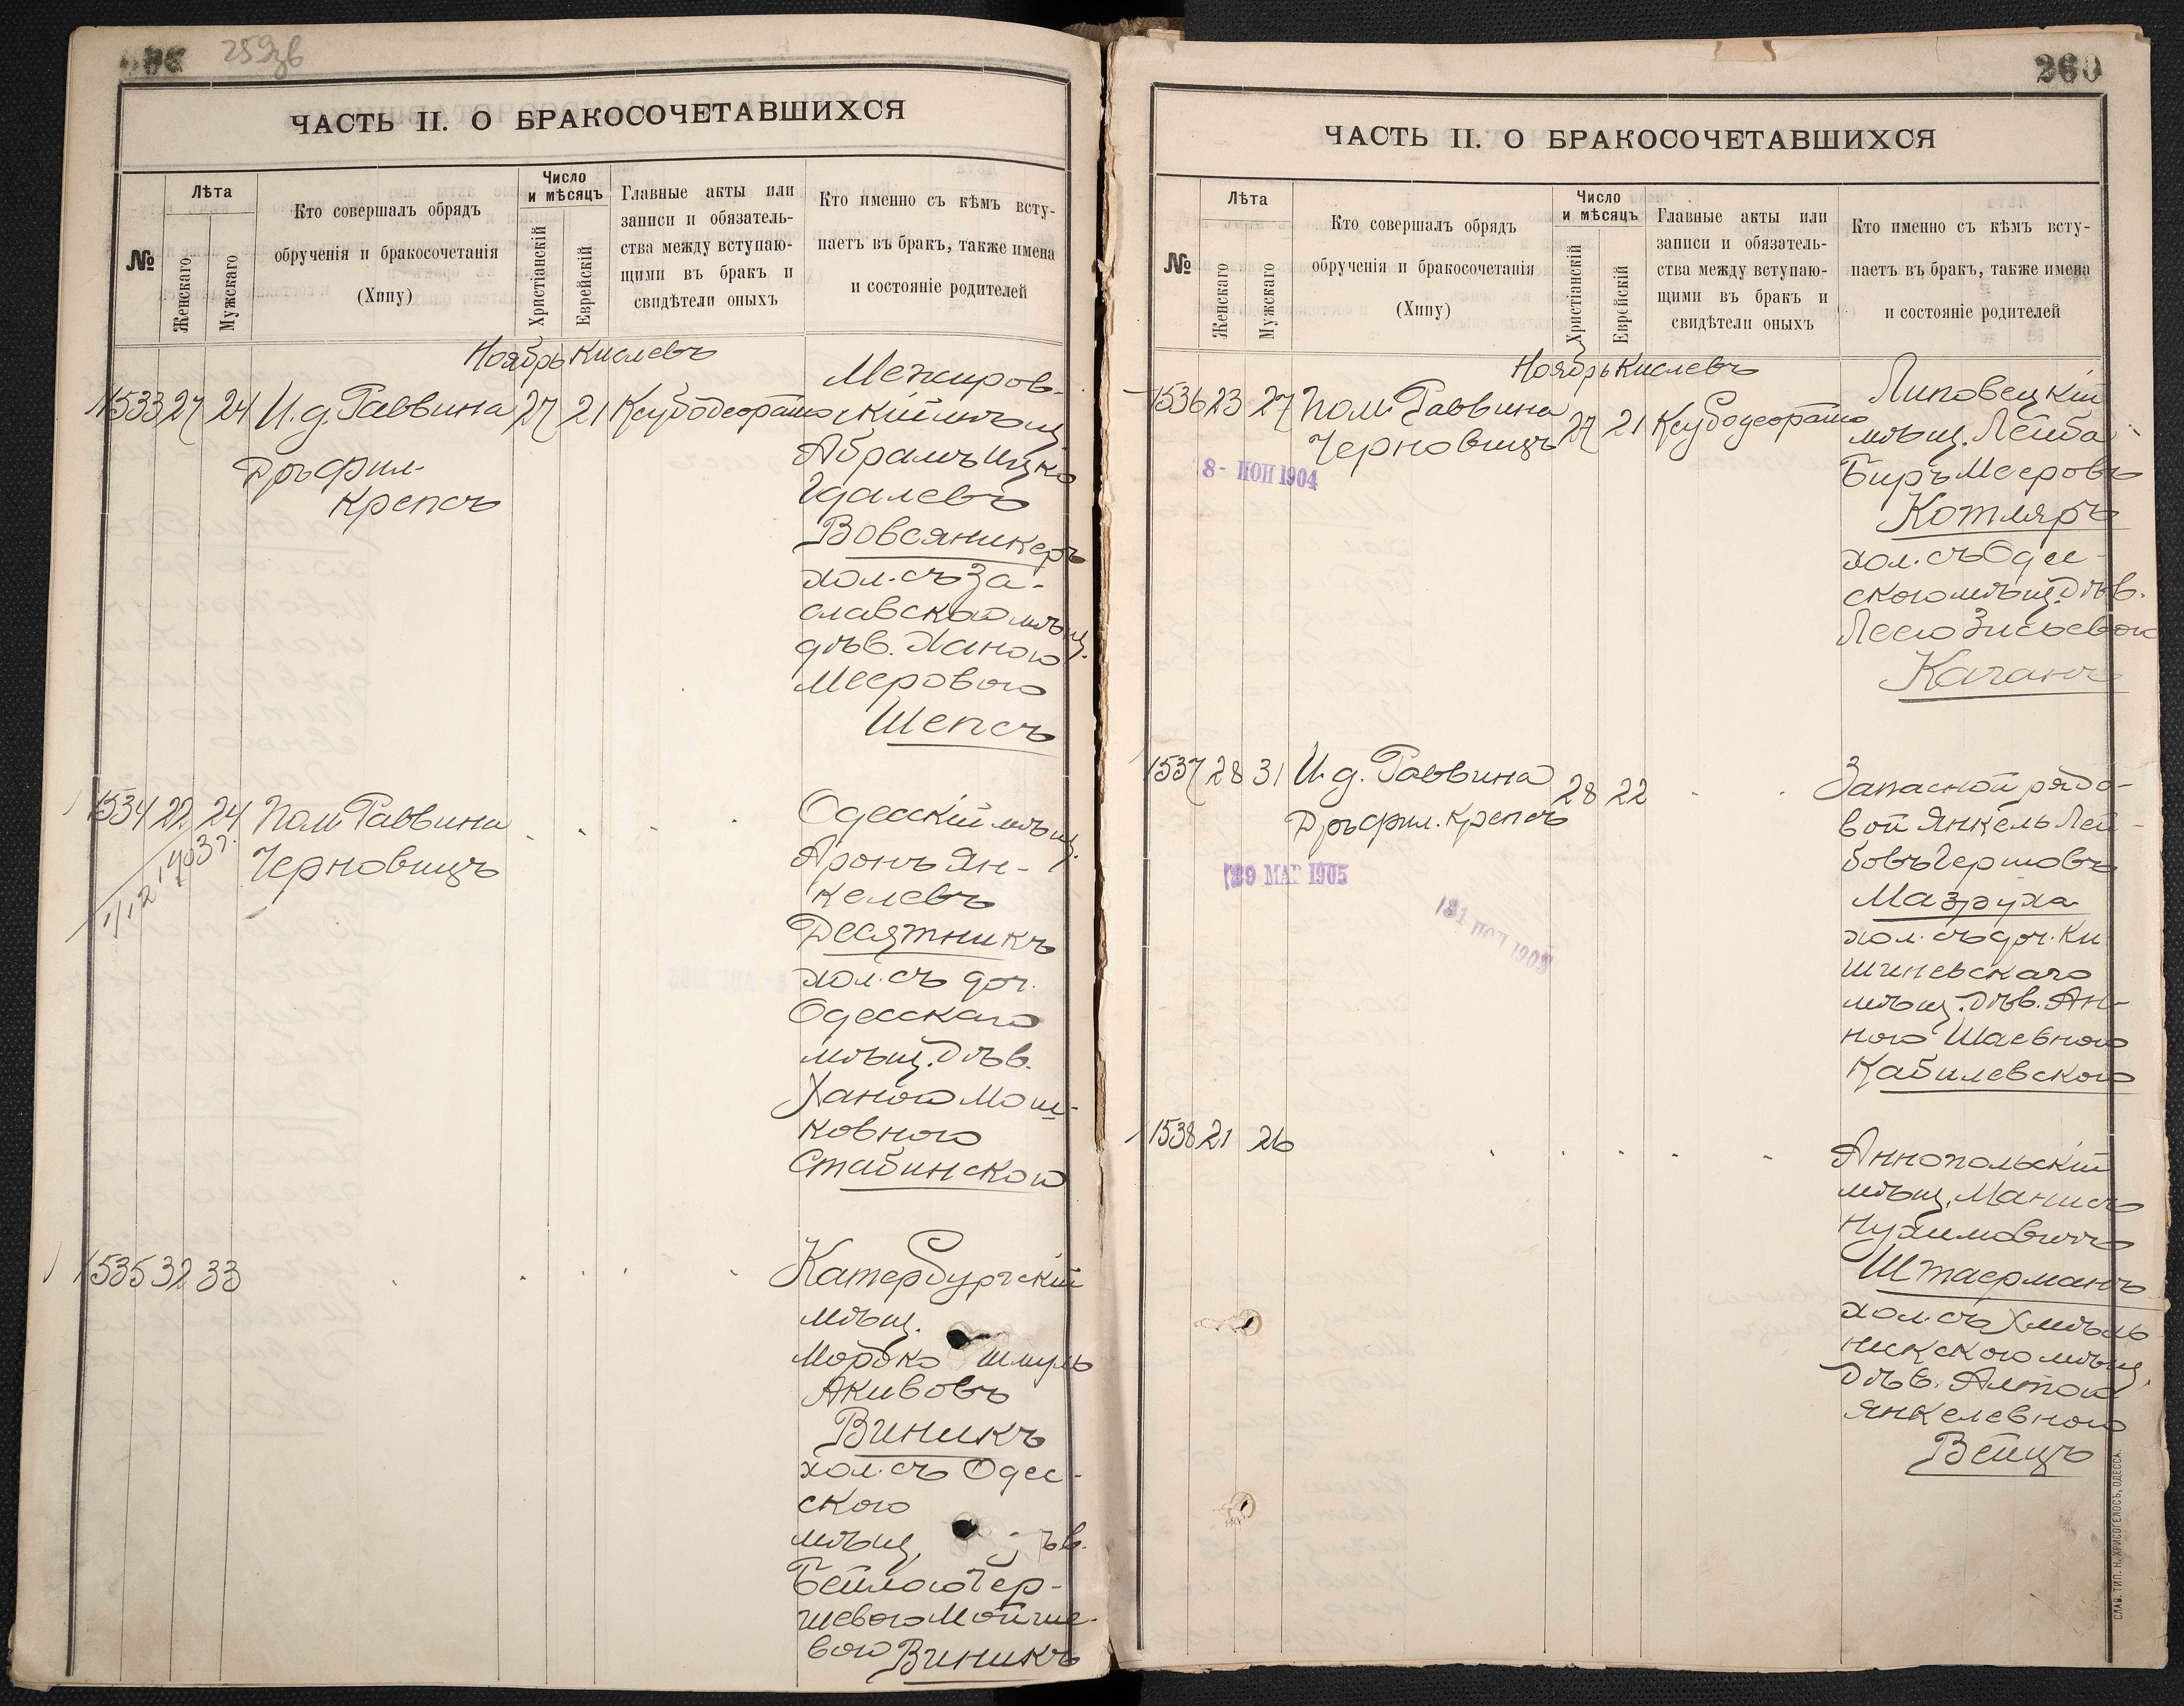 259зв
ЧАСТЬ II. О БРАКОСОЧЕТАВШИХСЯ
№
Лѣта
Женскаго
Мужскаго
Кто совершалъ обрядъ
обрученія и бракосочетанія
(Хипу)
Число
и мѣсяцъ
Христіанскій
Еврейскій
Главные акты или
записи и обязатель-
ства между вступаю-
щими въ бракъ и
свидѣтели оныхъ
Кто именно съ кѣмъ всту-
паетъ въ бракъ, также имена
и состояніе родителей
Ноябрь Кислевъ
1533 27 24 И. д. Раввина 27 21
Дръ фил.
Крепсъ
Межиров-
скій мѣщ.
Абрамъ Ицко
Гдалевъ
Вовсяникеръ
хол. съ За-
славской мѣщ.
дѣв. Ханою
Мееровою
Шепсъ
1534 22 24 Пом Раввина
Черновицъ
1/12 1903 г.
Одесскій мѣщ.
Аронъ Ян-
келевъ
Десятникъ
хол. съ доч.
Одесскаго
мѣщ. Дѣв.
Ханою Мош-
ковною
Стабинскою
1535 32 33
Катербургскій
мѣщ.
Мордко Шмуль
Акивовъ
Виникъ
хол. съ Одес-
скою
мѣщ. ѣв.
Бейлою Гер-
шевою Мойше-
вою Виникъ
260
ЧАСТЬ II. О БРАКОСОЧЕТАВШИХСЯ
№
Лѣта
Женскаго
Мужскаго
Кто совершалъ обрядъ
обрученія и бракосочетанія
(Хипу)
Число
и мѣсяцъ
Христіанскій
Еврейскій
Главные акты или
записи и обязатель-
ства между вступаю-
щими въ бракъ и
свидѣтели оныхъ
Кто именно съ кѣмъ всту-
паетъ въ бракъ, также имена
и состояніе родителей
Ноябрь Кислевъ
1536 23 27 Пом. Раввина 27 21
Черновицъ
8- ІЮН 1904
Липовецкій
мѣщ. Лейба
Биръ Мееровъ
Котляръ
хол. съ Одес-
скою мѣщ. Дѣв.
Леею Зисьевою
Каганъ
1537 28 31 И. д. Раввина 28 22
Дръ фил. Крепсъ
29 МАР 1905
Запасной рядо-
вой Янкель Лей-
бовъ Гершовъ
Мазруха
хол. съ доч. Ки
шиневскаго
мѣщ. Дѣв. Ан-
ною Шаевною
Кабилевскою
1538 21 26
Аннопольскій
мѣщ. Манисъ
Нухимовичъ
Штаерманъ
хол. съ Хмѣль
никскою мѣщ.
Дѣв. Алтою
Янкелевною
Вейцъ
СЛАВ. ТИП. Н. ХРИСОГЕЛОСЪ, ОДЕССА.